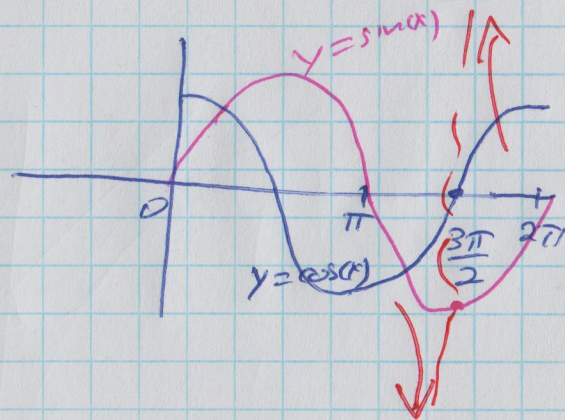 y=sin(x)
0
π
3π/2
2π
y=cos(x)